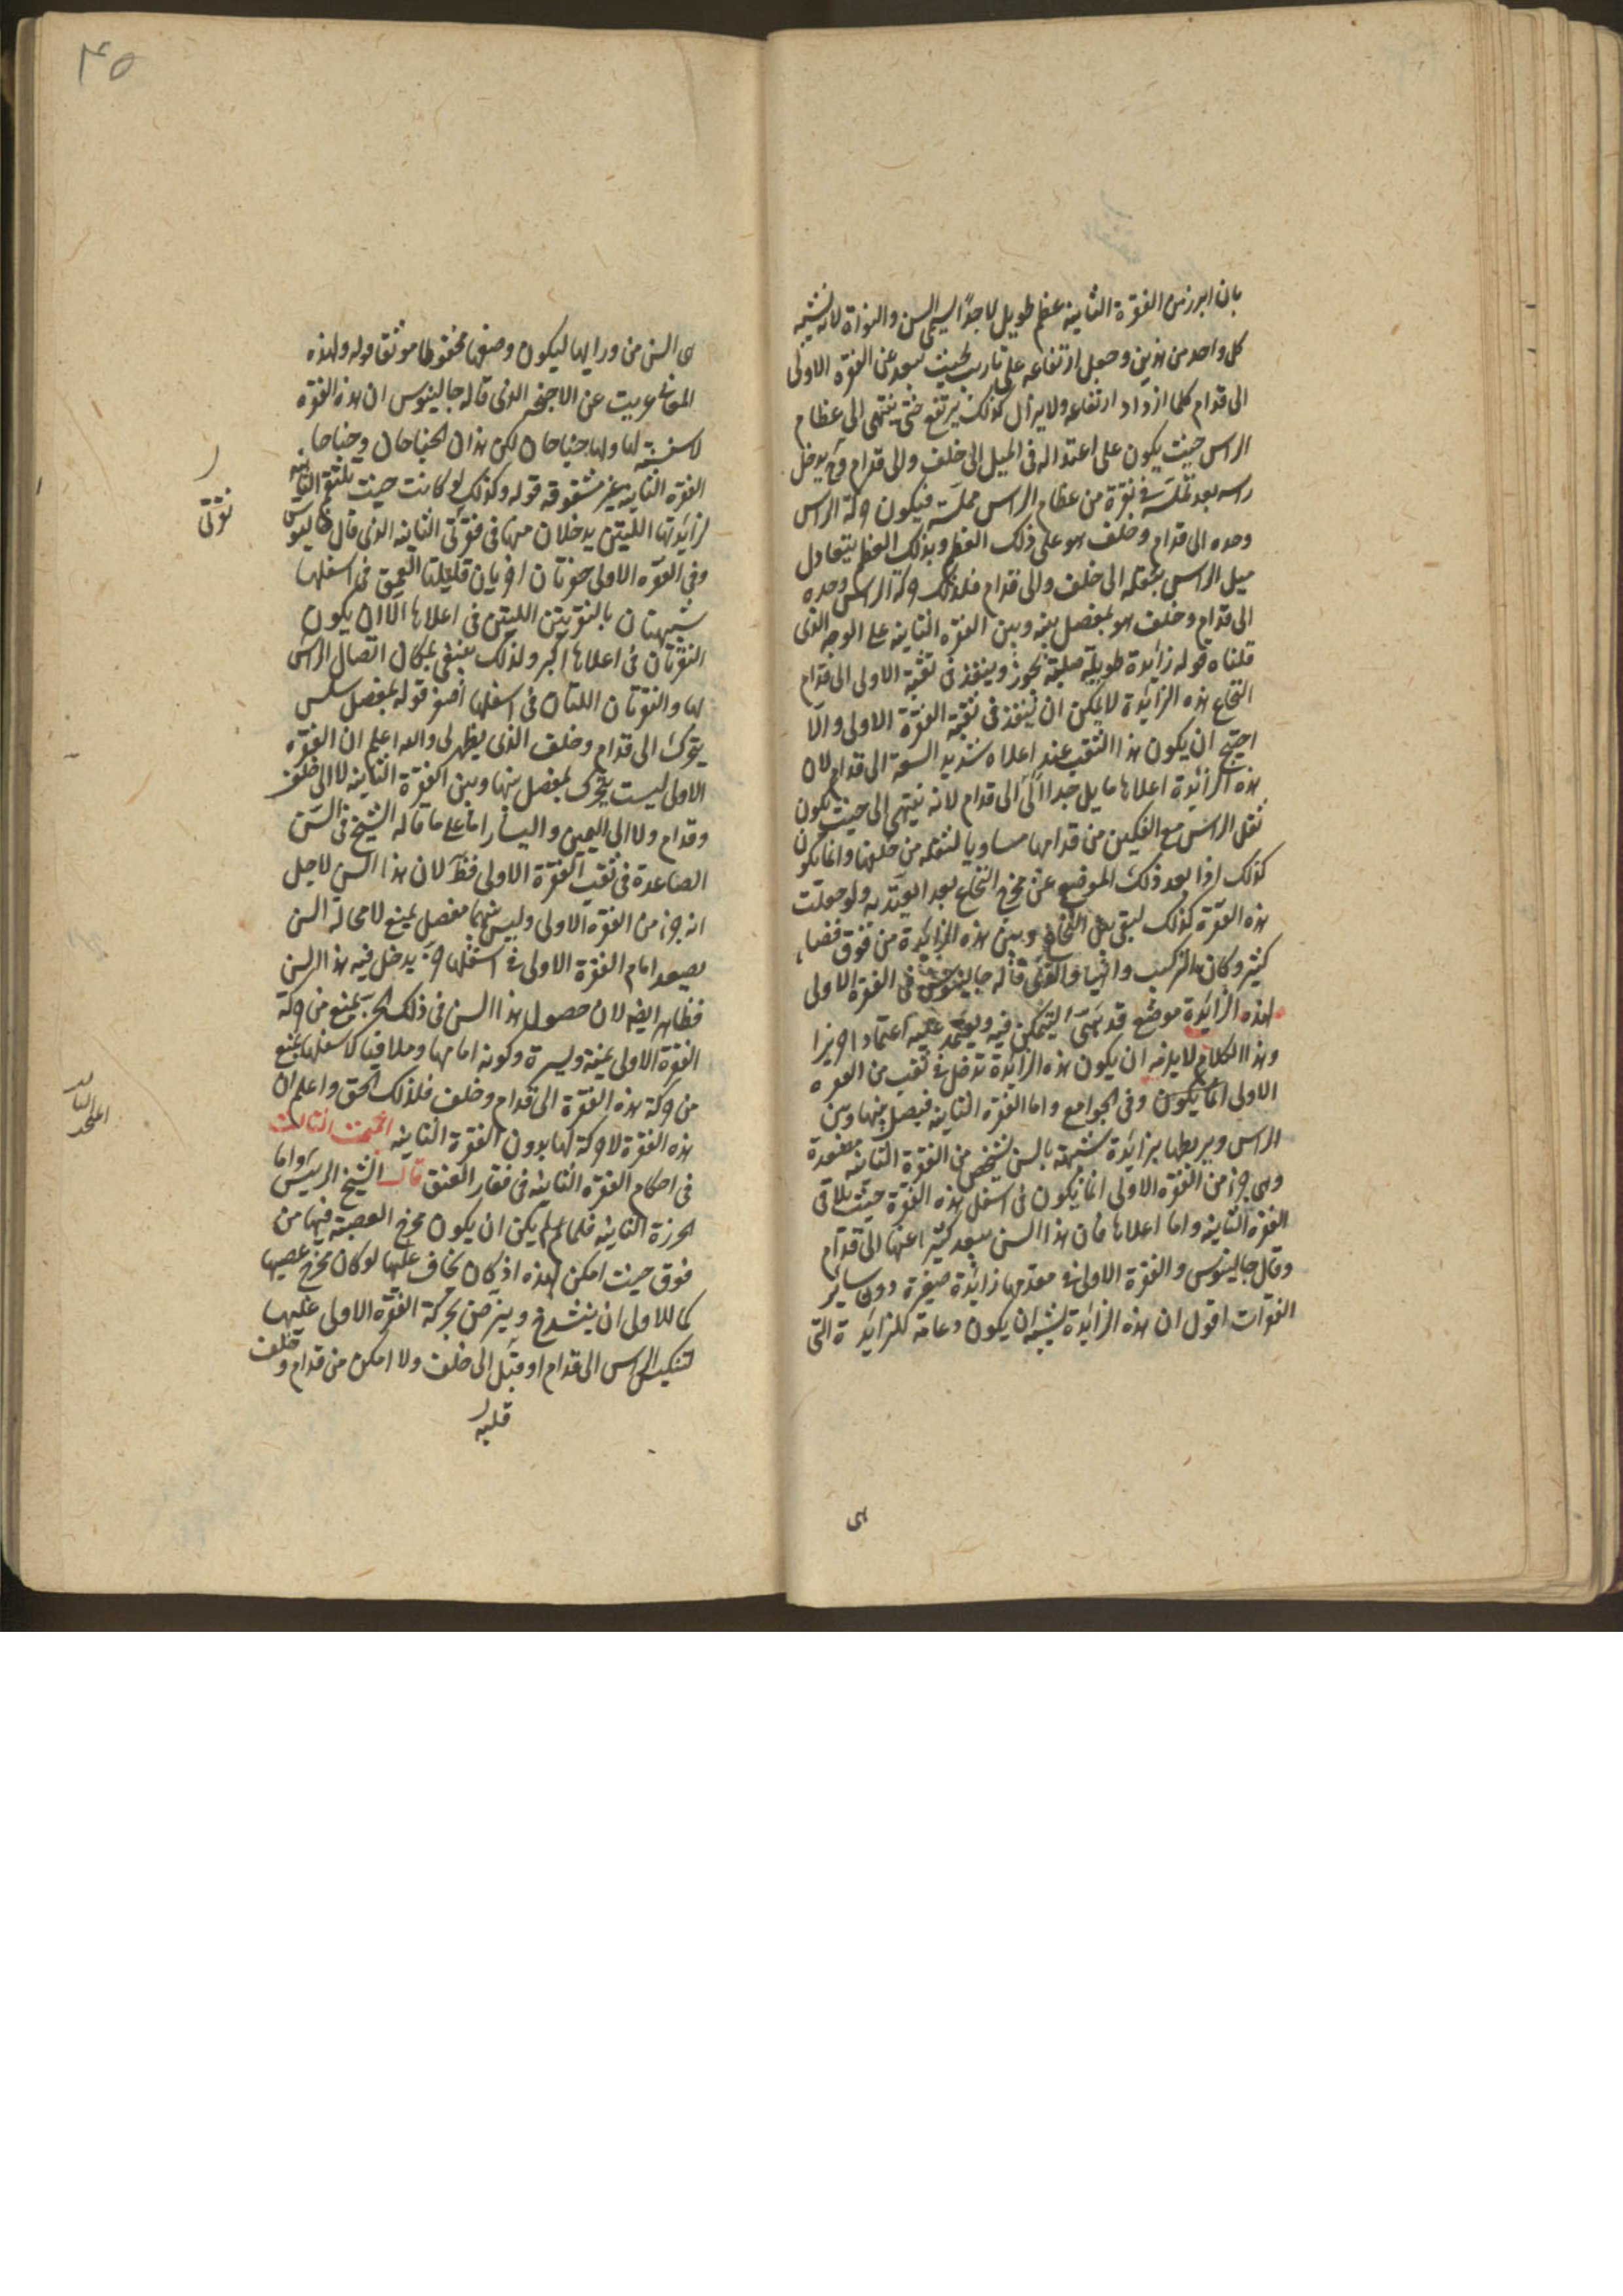 بان ابرز من الفقرة الثانية عظم طويل لا جدا يسمى السن والنواة لانه يشبه
كل واحد من هذين وجعل ارتفاعه على تاريب بحيث يبعد عن الفقرة الاولى
الى قدام كلما ازداد ارتفاعه ولا يزال كذلك يرتفع حتى ينتهى الى عظام
الراس حيث يكون على اعتداله فى الميل الى خلف والى قدام وح يدخل
راسه بعد فى نقرة من عظام الراس مملسة فيكون حركة الراس
وحده الى قدام وخلف هو على ذلك العظم وبذلك العظم يتعادل
ميل الراس بثقله الى خلف والى قدام فلذلك حركة الراس وحده
الى قدام وخلف هو بمفصل بينه وبين الفقرة الثانية على الوجه الذى
قلناه قوله زائدة طويلة صلبة تجوز وينفذ فى ثقبة الاولى الى قدام
النخاع هذه الزائدة لا يمكن ان ينفذ فى ثقبة الفقرة الاولى والا
احتيج ان يكون هذا الثقب عند اعلاه شديد السعة الى قدام لان
هذه الزائدة اعلاها مايل جدا الى قدام لانه ينتهى الى حيث يكون
ثقل الراس مع الفكين من قدامها مساويا لثقله من خلفها وانما يكون
كذلك اذا بعد ذلك الموضع عن مخرج النخاع بعدا يعتد به ولو جعلت
هذه الفقرة كذلك لبقى بين النخاع وبين هذه الزائدة من فوق فضاء
كثير وكان التركيب واهيا والذى قاله جالينوس فى الفقرة الاولى
لهذه الزائدة موضع قد تهيئ ليتمكن فيه ويعتمد عليه اعتمادا حريزا
وهذا الكلام لا يلزمه ان يكون هذه الزائدة تدخل فى ثقب من الفقرة
الاولى انما يكون وفى الجوامع واما الفقرة الثانية فيصل بينها وبين
الراس ويربطها بزائدة شبيهة بالسن تشخص من الفقرة الثانية مصعدة
وهى جزء من الفقرة الاولى انما يكون فى اسفل هذه الفقرة حيث يلاقى
الفقرة الثانية واما اعلاها فان هذا السن يبعد كثيرا عنها الى قدام
وقال جالينوس والفقرة الاولى فى مقدمها زائدة صغيرة دون ساير
الفقرات اقول ان هذه الزائدة يشبه ان يكون دعامة للزائدة التى
هى
٣٥
هى السن من ورايها ليكون وضعها محفوظا موثقا قوله ولهذه
المعانى عريت عن الاجنحة الذى قاله جالينوس ان هذه الفقرة
لا سنسنة لها ولها جناحان لكن هذان الجناحان وجناحا
الفقرة الثانية غير مشقوقة قوله وكذلك لو كانت حيث تلتقم الثانية
لزائدتها اللتين يدخلان منها فى نقرتى الثانية الذى قال جالينوس
وفى الفقرة الاولى حفرتان اخريان قليلتا العمق فى اسفلها
شبيهتان بالنقرتين اللتين فى اعلاها الا ان يكون
النقرتان فى اعلاها اكبر ولذلك ينبغى لمكان اتصال الراس
لها والنقرتان اللتان فى اسفلها اصغر قوله بمفصل سلس
يتحرك الى قدام وخلف الذى يظهر لى والله اعلم ان الفقرة
الاولى ليست يتحرك بمفصل بينها وبين الفقرة الثانية لا الى خلف
وقدام ولا الى اليمين واليسار اما على ما قاله الشيخ فى السن
الصاعدة فى ثقب الفقرة الاولى فظ لان هذا السن لاجل
انه جزء من الفقرة الاولى وليس بينهما مفصل يمنع لا محالة السن
يصعد امام الفقرة الاولى فى اسفلها جزء يدخل فيه هذا السن
فظاهر ايضه لان حصول هذا السن فى ذلك الجزء يمنع من حركة
الفقرة الاولى يمنة ويسرة وكونه امامها وملاقيا لاسفلها يمنع
من حركة هذه الفقرة الى قدام وخلف فلذلك الحق واعلم ان
هذه الفقرة لا حركة لها بدون الفقرة الثانية البحث الثالث
فى احكام الفقرة الثانية فى فقار العنق قال الشيخ الرييس واما
الخرزة الثانية فلما لم يكن ان يكون مخرج العصبة فيها من
فوق حيث امكن لهذه اذ كان يخاف عليها لو كان مخرج عصبها
كما للاولى ان ينشدخ ويترضض بحركة الفقرة الاولى عليها
لتنكيس الراس الى قدام او قبله الى خلف ولا امكن من قدام وخلف
قلبه
نقرتى